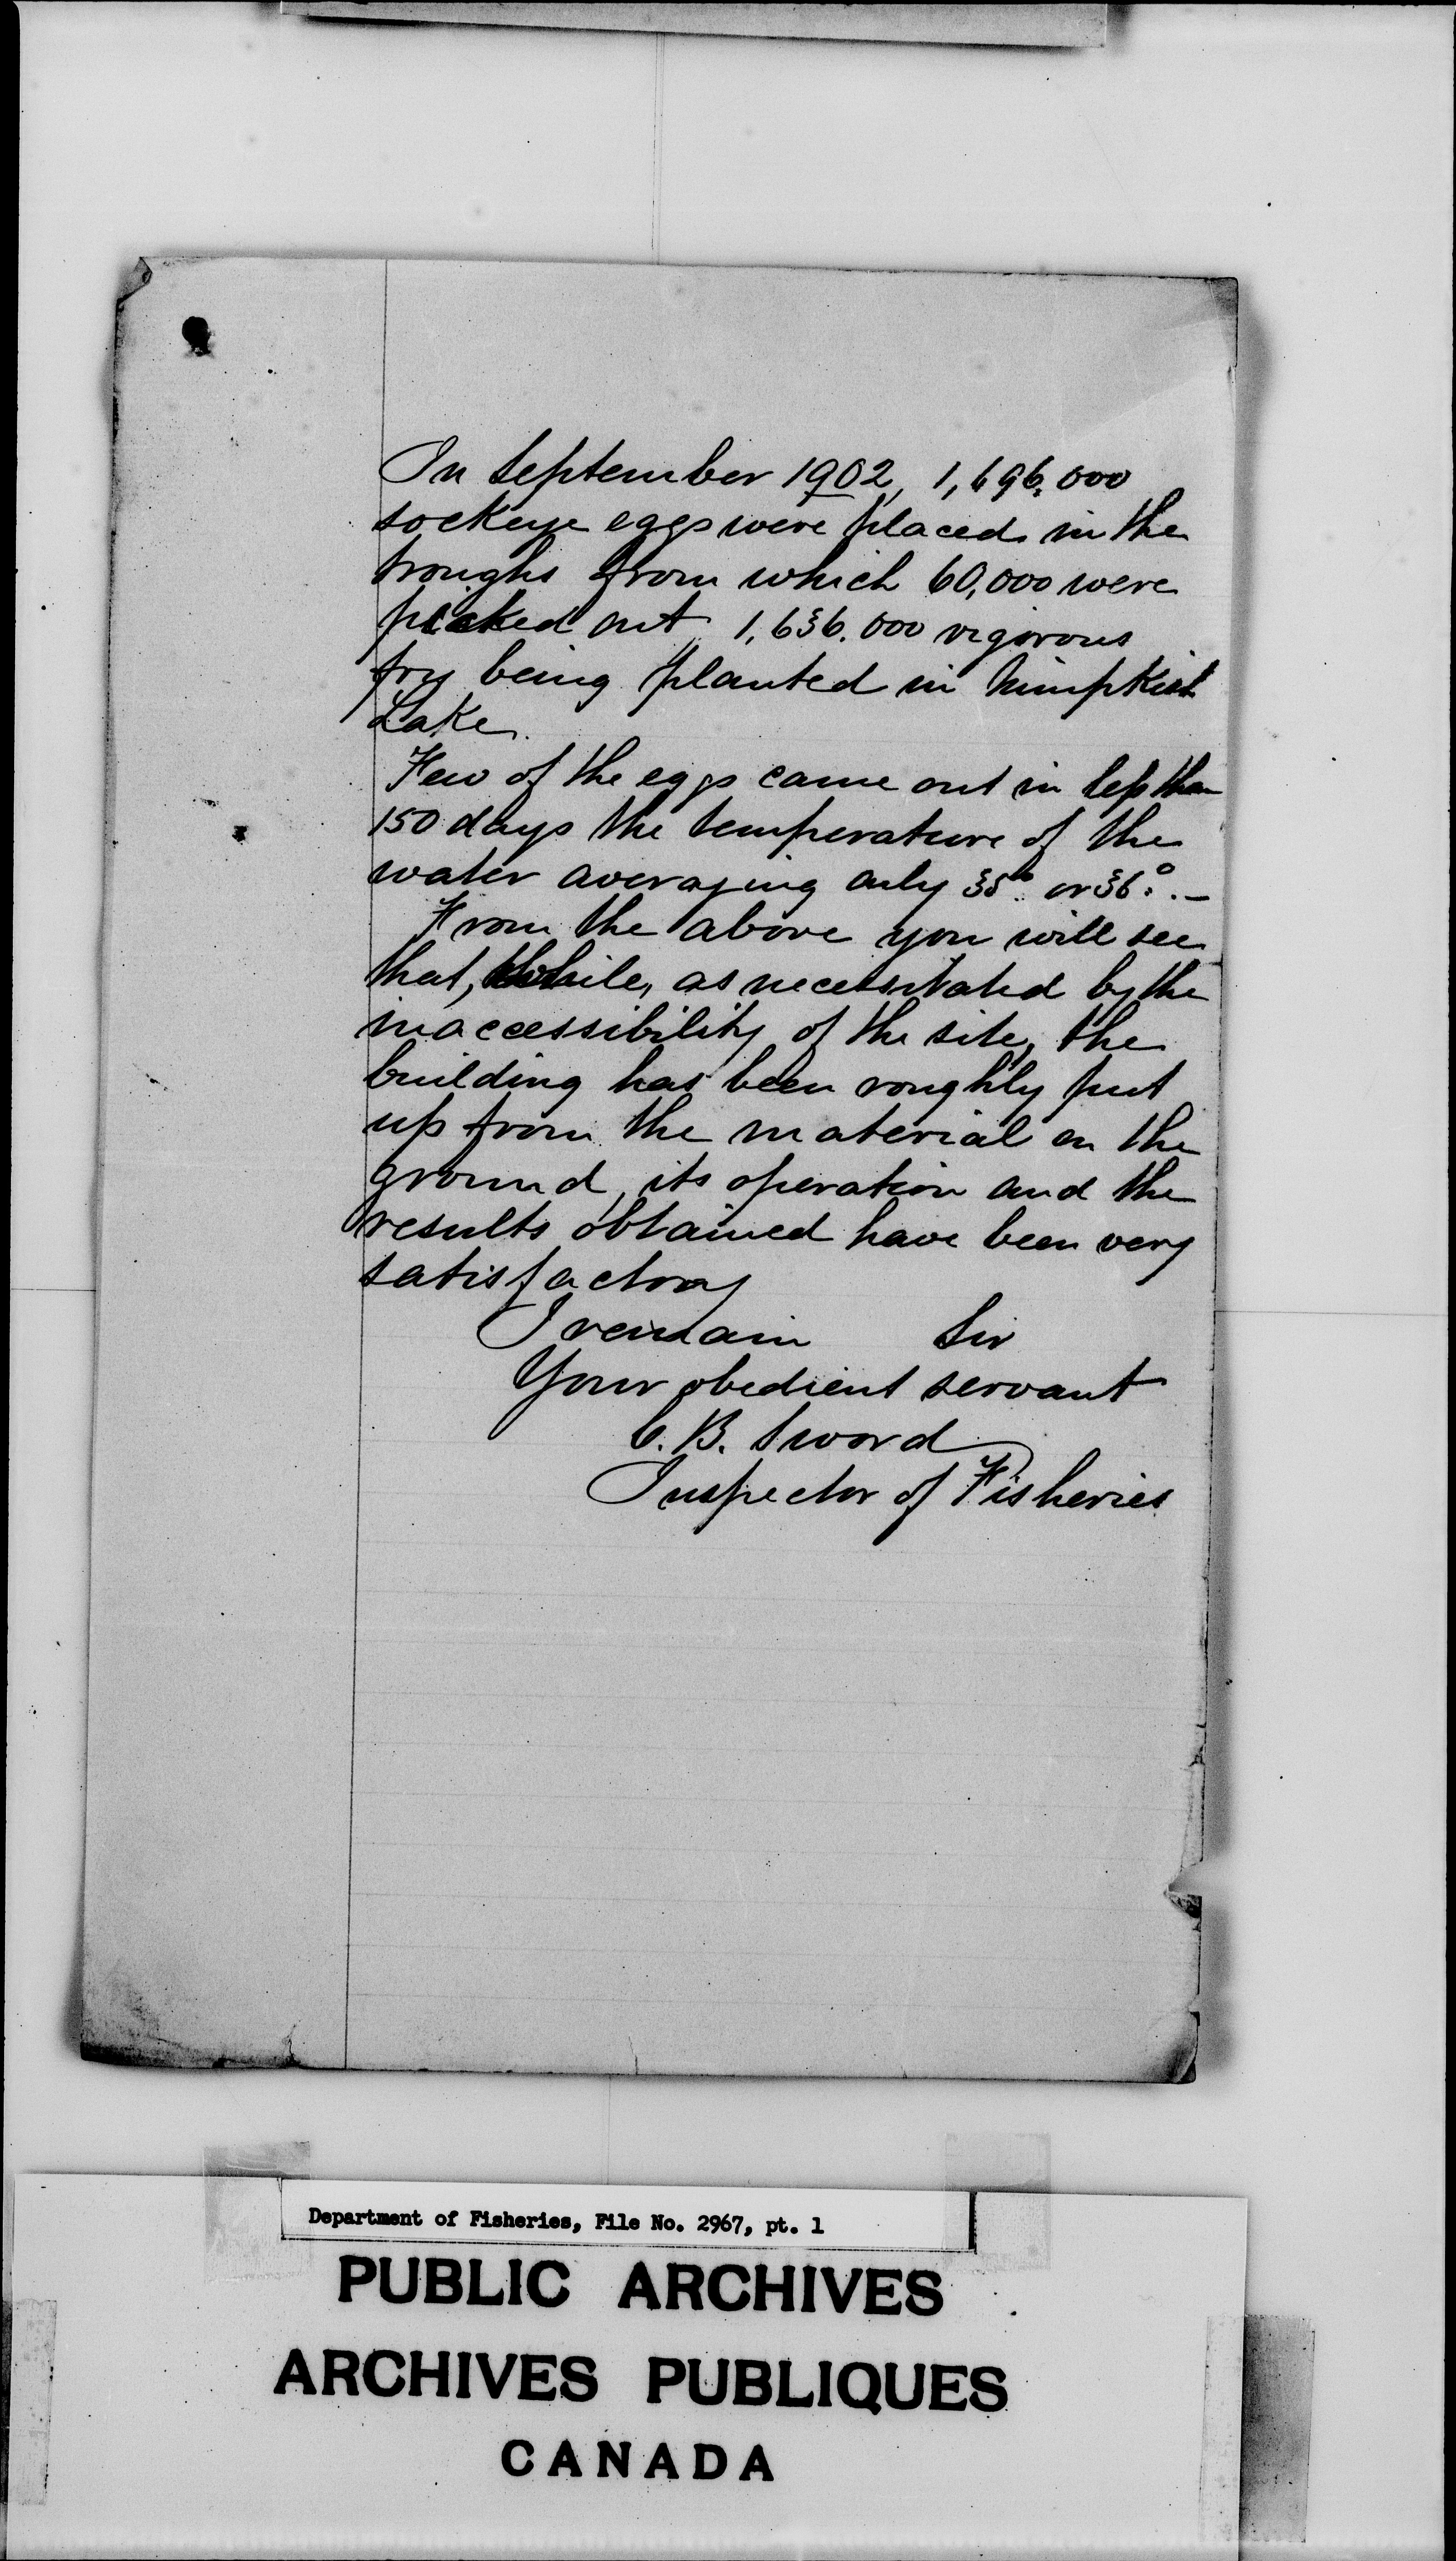 In September 1902, 1,696,000
sockeye eggs were placed in the
troughs from which 60,000 were
picked out, 1,636,000 vigorous
fry being planted in Nimpkish
Lake.
Few of the eggs came out in less than
150 days the temperature of the
water averaging only 35° or 36°. —
From the above you will see
that, while, as necessitated by the
inaccessibility of the site, the
building has been roughly put
up from the material on the
ground, its operation and the
results obtained have been very
satisfactory
I remain Sir
Your obedient servant
C. B. Sword
Inspector of Fisheries
Department of Fisheries, File No. 2967, pt. 1
PUBLIC ARCHIVES
ARCHIVES PUBLIQUES
CANADA